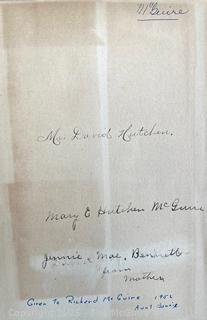 McGuire
Mr. David Hutchen.
Mary E Hutchen McGuire
Jennie Mae, Bennett
from
Mother
Given To Richard McGuire 1952
Aunt Jennie